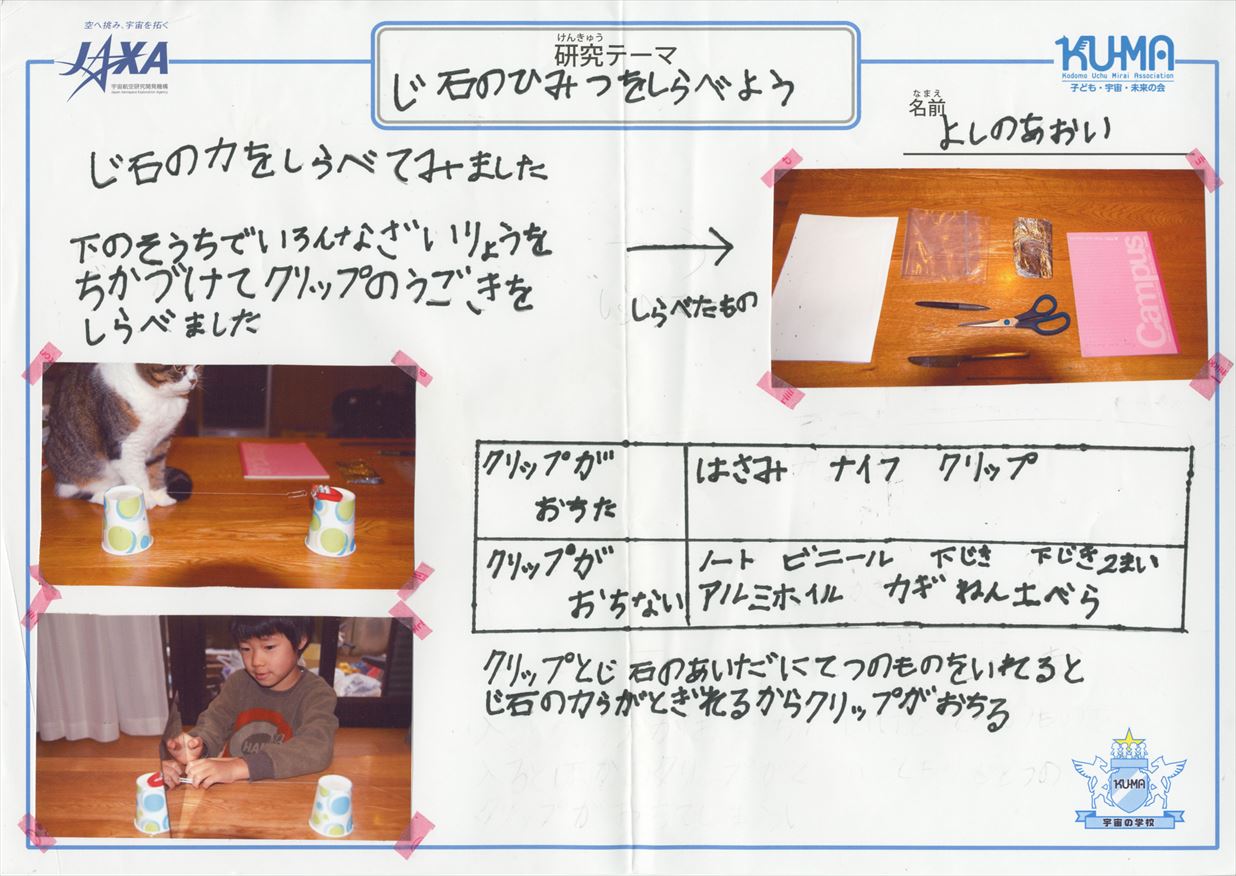 空へ挑み、宇宙を拓く
JAXA
宇宙航空研究開発機構
Japan Aerospace Exploration Agency
けんきゅう
研究テーマ
じ石のひみつをしらべよう
KU-MA
Kodomo Uchu Mirai Association
子ども・宇宙・未来の会
なまえ
名前
よしのあおい
じ石の力をしらべてみました
下のそうちでいろんなざいりょうを
ちかづけてクリップのうごきを
しらべました
しらべたもの
Campus
クリップが
おちた
はさみ ナイフ クリップ
クリップが
おちない
ノート ビニール 下じき 下じき2まい
アルミホイル カギ ねん土べら
クリップとじ石のあいだにてつのものをいれてると
じ石の力らがとぎれるからクリップがおちる
KU-MA
宇宙の学校